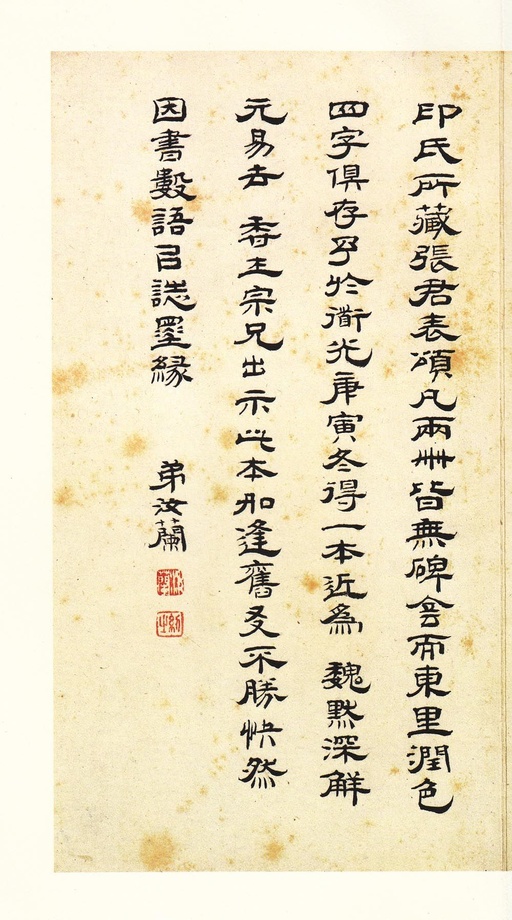 印氏所藏張君表頌凡兩冊皆無碑侌而東里潤色
四字俱存予於衜光庚寅冬得一本近爲 魏默深解
元易去 王宗兄出示此本如逢舊友不勝快然
因書數語㠯誌墨緣
弟汝蘭